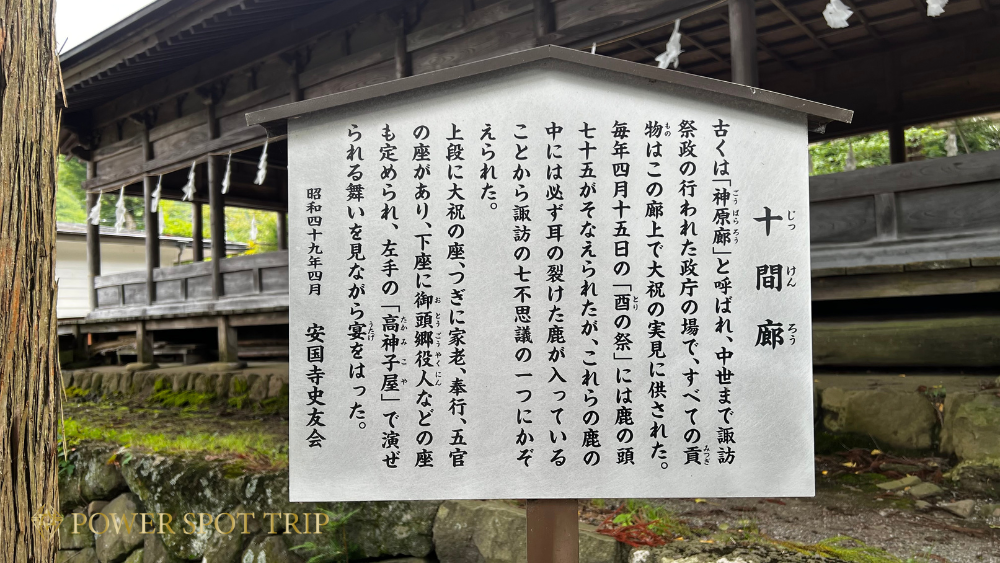 十間廊
じっけんろう
古くは「神原廊」と呼ばれ、中世まで諏訪
ごうばらろう
祭政の行われた政庁の場で、すべての貢
みつぎ
物はこの廊上で大祝の実見に供された。
もの
毎年四月十五日の「酉の祭」には鹿の頭
とり
七十五がそなえられたが、これらの鹿の
中には必ず耳の裂けた鹿が入っている
ことから諏訪の七不思議の一つにかぞ
えられた。
上段に大祝の座、つぎに家老、奉行、五官
の座があり、下座に御頭郷役人などの座
おとうごうやくにん
も定められ、左手の「高神子屋」で演ぜ
たかみこや
られる舞いを見ながら宴をはった。
うたげ
昭和四十九年四月 安国寺史友会
POWER SPOT TRIP